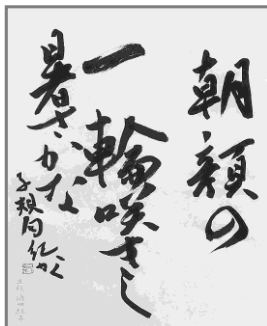 朝顔の
一輪咲きし
暑さかな